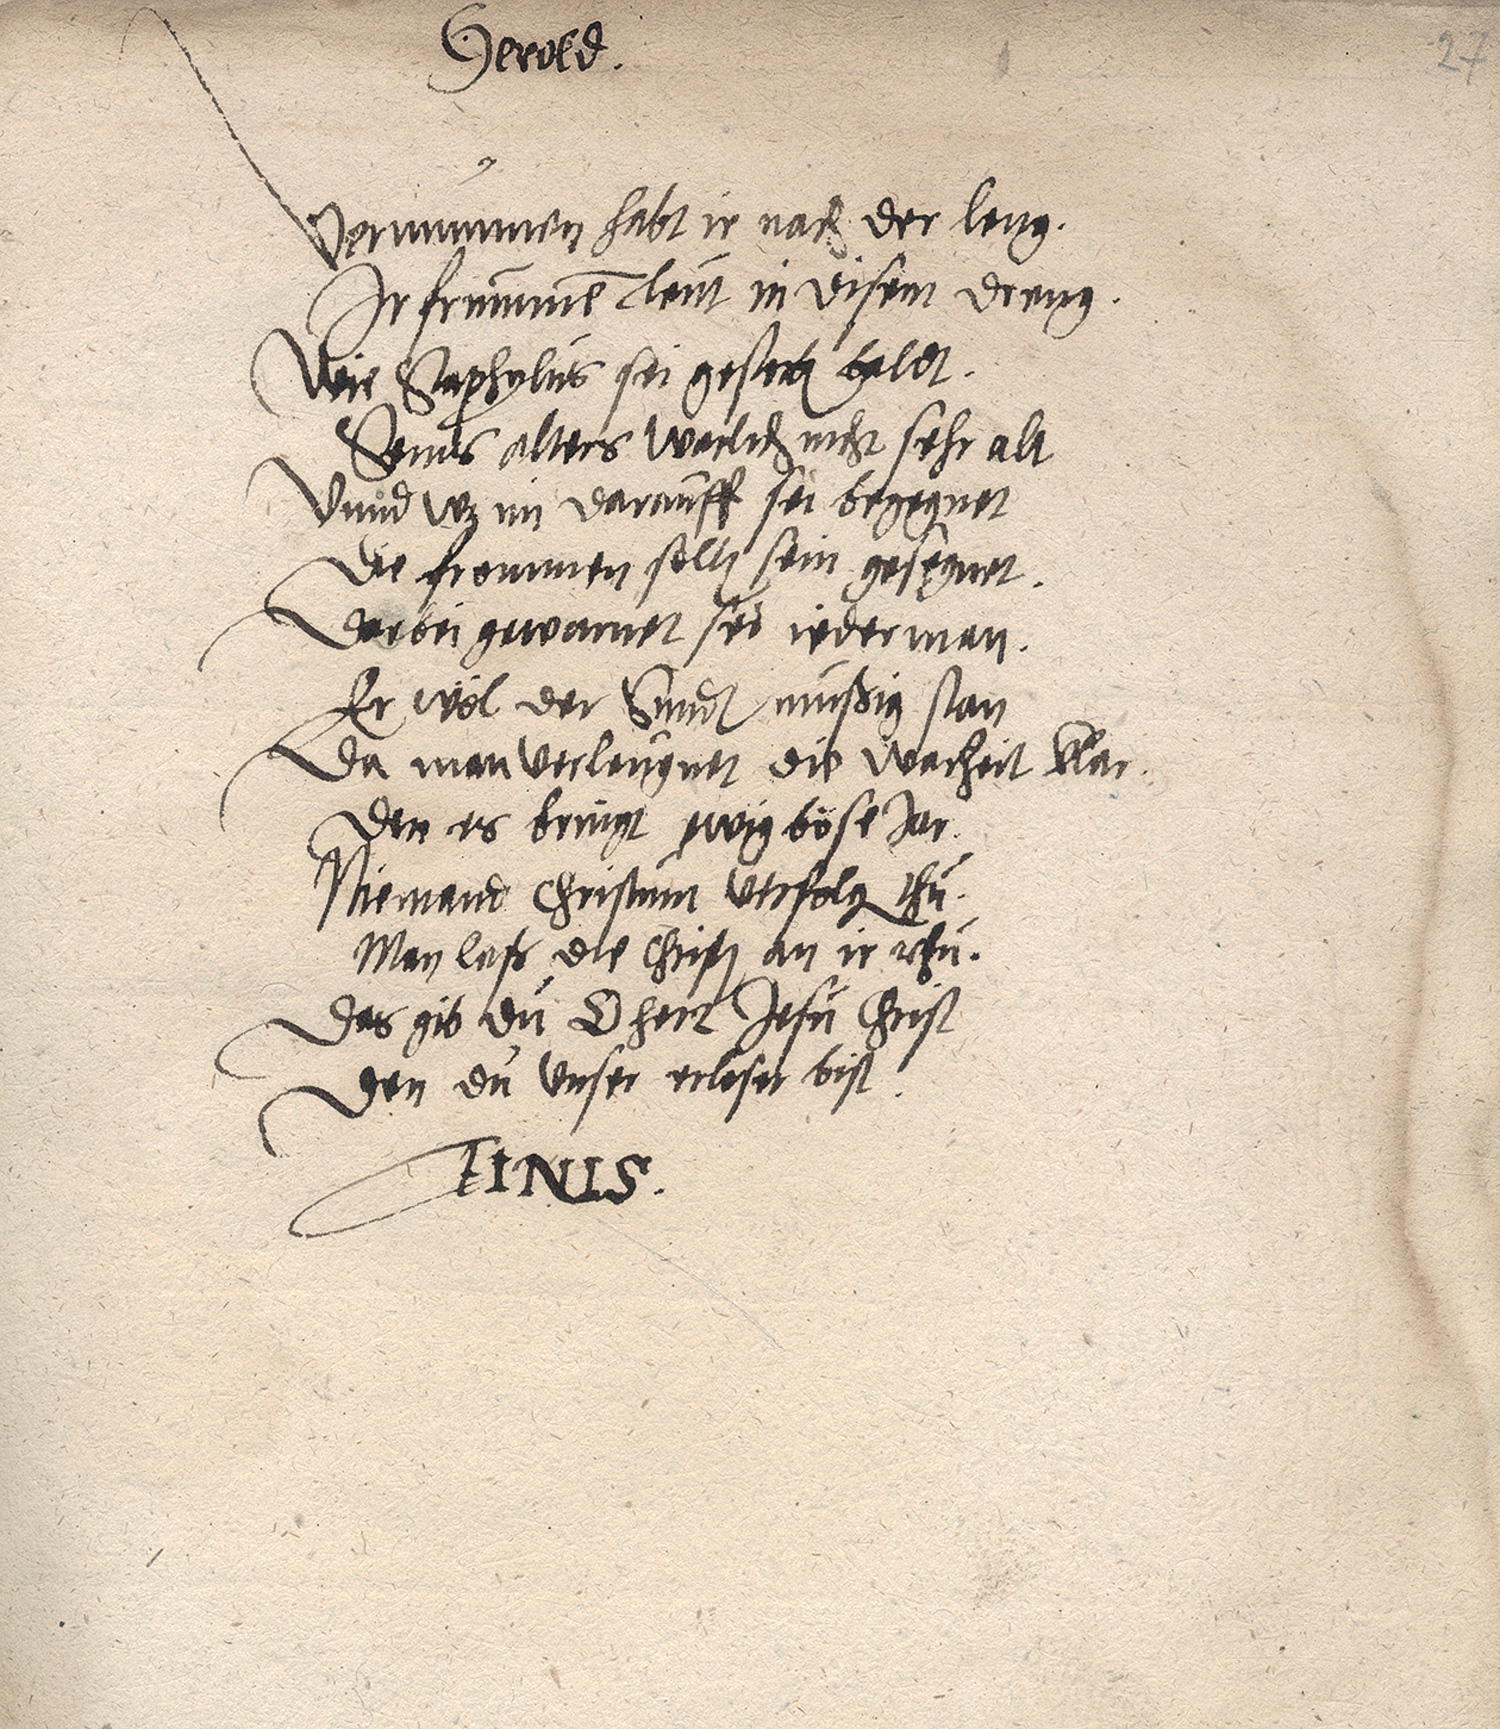 Herold.
27
Vernummen habt ir nach der leng.
Ir frummē leut in disem dreng.
Wie Staphylus sei gestorbn baldt.
Seins alters warlich nicht sehr alt
Vnnd wz im darauff sei begegnet
Die frommen solln sein gesegnet.
Darbei gewarnet sei iederman.
Er wöl der Sundt mußig stan
Da man verleugnet die warheit klar.
Den es bringt ewig böse Jar.
Niemand Christum verfolg thu.
Man laß die Christn an ir rhu.
Das gib du O herr Jesu Christ
Den du vnser erlöser bist.
FINIS.